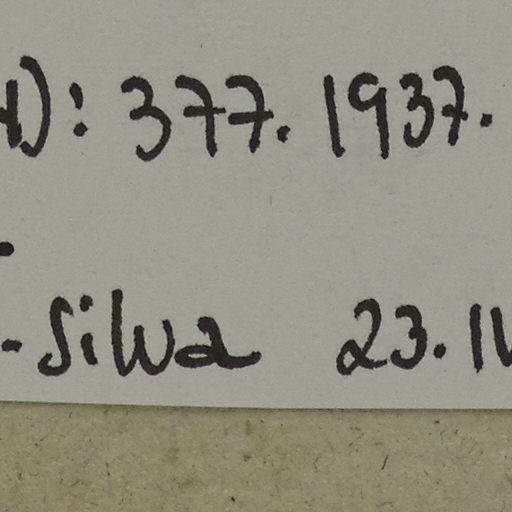 ): 377. 1937.
-Silva 23.IV